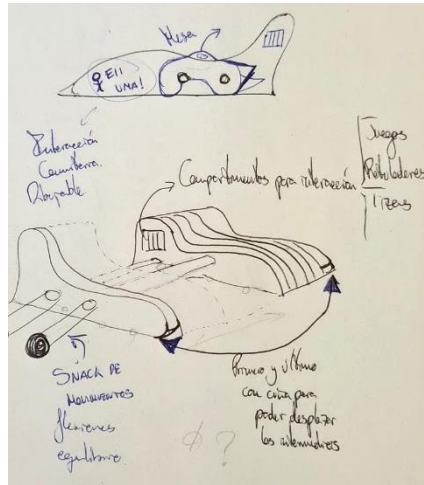 Mesa
EII
UMA!
Interacción
Comunitaria.
Dibujable
Compartimentos para interacción
Juegos
Rotuladores
Tizas
SNACK DE
MOVIMIENTOS
flexiones
equilibrio.
Primero y último
con cuña para
poder desplazar
los intermedios
Ø ?